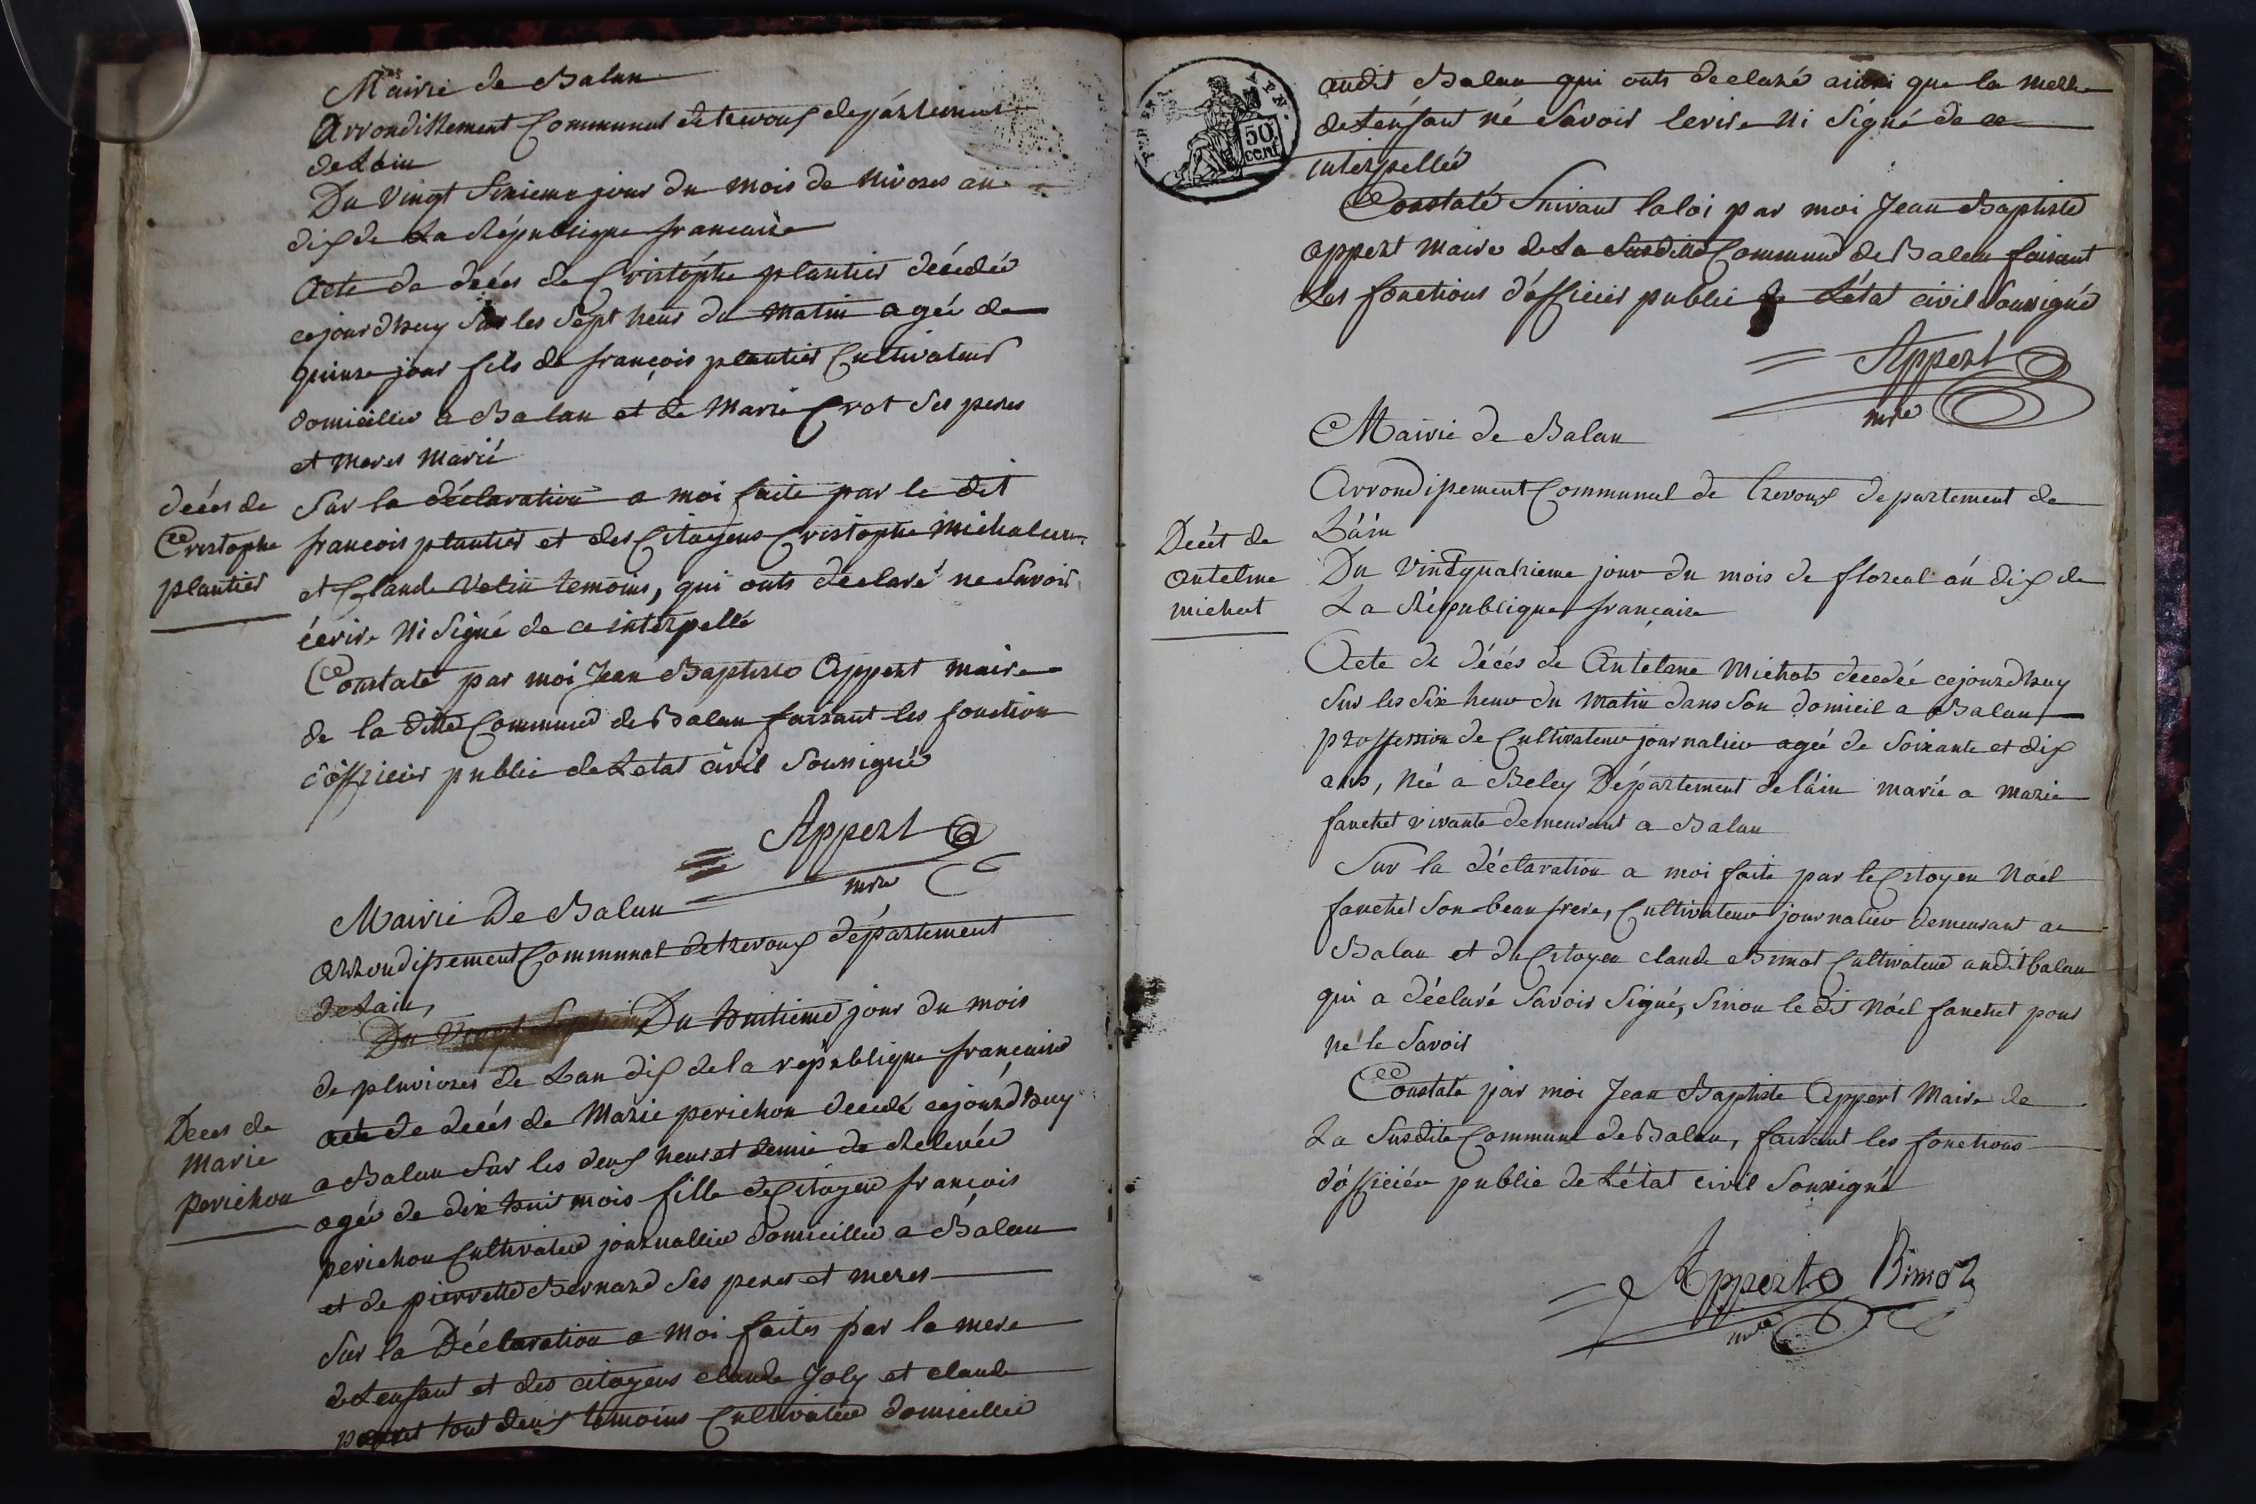 Mairie de Balan
Arrondissement Communal de trevoux département
de Láin
Du Vingt Sixieme jour du mois de Nivoses an
dix de La République francaise
Acte de decés de Cristophe plantier décedée
cejourdhuy Sur les Sept heur du matin agée de
quinze jour fils de françois plantier Cultivateur
domicillié a Balan et de Marie Crot Ses peres
et meres marié
decés de
Cristophe
plantier
Sur la déclaration a moi faite par le dit
francois plantier et des Citoyens Cristophe Michalun
et Claude Velin temoins, qui onts déclaré ne Savoir
écrire Ni Signé de ce interpellé
Constaté par moi Jean Baptiste Appert maire
de la ditte Commune de Balan faisant les fonction
d'officier public de Letat civil Soussigné
Appert
mre
Mairie De Balan
arrondissement Communal de trevoux département
de Lain,
Du Vingt Septieme Du huitieme jour du mois
de pluvioses de Lan dix de la république francaise
acte de decés de Marie perichon decedé cejourdhuy
a Balan Sur les deux heur et demie de Relevée
agée de dix huit mois fille de Citoyen françois
perichon Cultivateur journallier domicillié a Balan
et de pierrette Bernard Ses peres et meres
Deces de
Marie
perichon
Sur la Déclaration a moi faites par la mere
de Lenfant et des citoyens claude Joly et claude
tout deux temoins Cultivateur domicillié
50
cent
audit Balan qui onts declaré ainsi que la merre
de Lénfant né Savoir lerire Ni Signé de ce
interpellés
Constaté Suivant la loi par moi Jean Baptiste
appert maire de La Susditte Commune de Balan faisant
Les fonctions d'officier public de L'état civil Soussigné
Appert
mre
Mairie de Balan
Arrondissement Communal de trevoux departement de
Láin
Décét de
antelme
michot
Du Vindquatrieme jour du mois de floreal án dix de
La République française
Acte de décés de Antelme Michot decedée cejourdhuy
Sur les Six heur du matin dans Son domicil a Balan
proffession de Cultivateur journalier agée de Soixante et dix
ans, Né a Beley Département de láin marié a marie
fanchet vivante demeurant a Balan
Sur la déclaration a moi faite par le Citoyen Noël
fanchet Son beau frere, Cultivateur journalier demeurant a
Balan et du Citoyen claude Bimot Cultivateur audit balan
qui a déclaré Savoir Signé, Sinon le dit Nóël fanchet pour
ne le Savoir
Constaté par moi Jean Baptiste Appert Maire de
La Susdite Commune de Balan, faisant les fonctions
d'officiér public de L'état civil Soussigné
Appert Bimot
mre